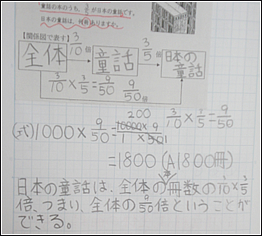 童話の本のうち、3/5が日本の童話です。
日本の童話は、何冊ありますか。
【関係図で表す】
3/10倍 3/5倍
全体 → 童話 → 日本の童話
3/10×3/5=9/50 9/50倍
(式)1000×9/50=10000×9/1×50
200
3/10×3/5=9/50
=1800 (A1800冊)
日本の童話は、全体の冊数の3/10×3/5
倍、つまり、全体の9/50倍ということが
できる。